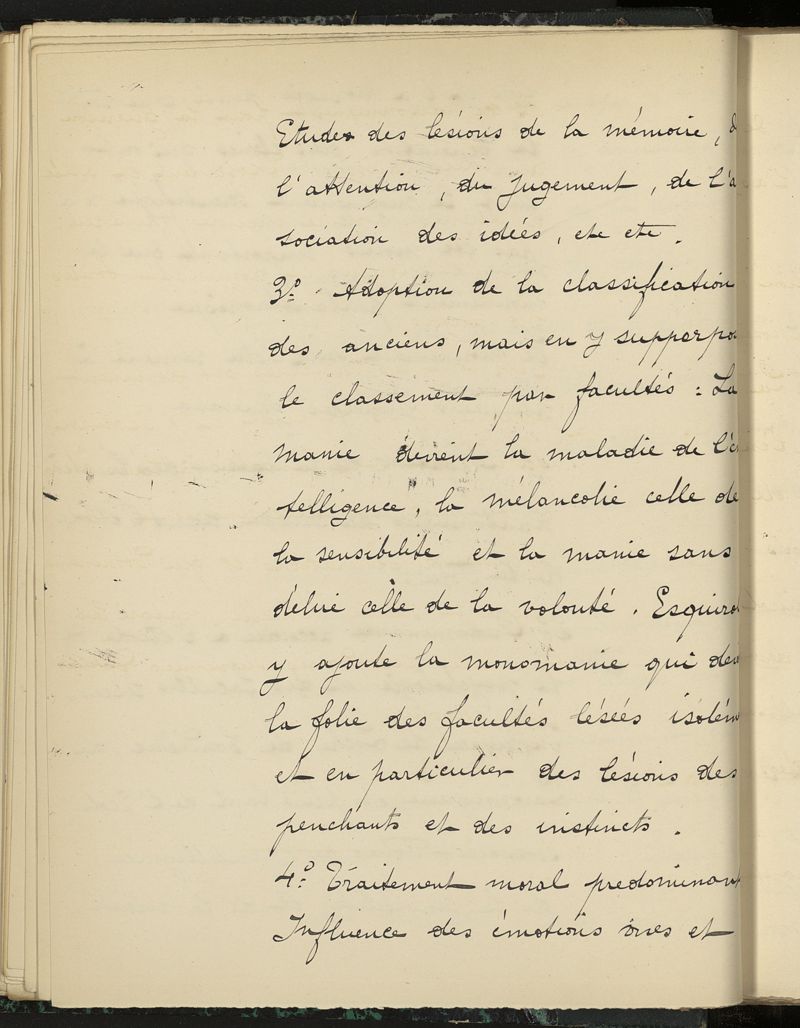 Etudes des lésions de la mémoire, d
l'attention, du jugement, de l'a
sociation des idées, etc etc.
3º Adoption de la classification
des anciens, mais en y supperpo
le classement par facultés : La
manie devient la maladie de l'i
telligence, la mélancolie celle de
la sensibilité et la manie sans
délire celle de la volonté. Esquirol
y ajoute la monomanie qui dev
la folie des facultés lésées isolém
et en particulier des lésions des
penchants et des instincts.
4º Traitement moral predominant
Influence des émotions et